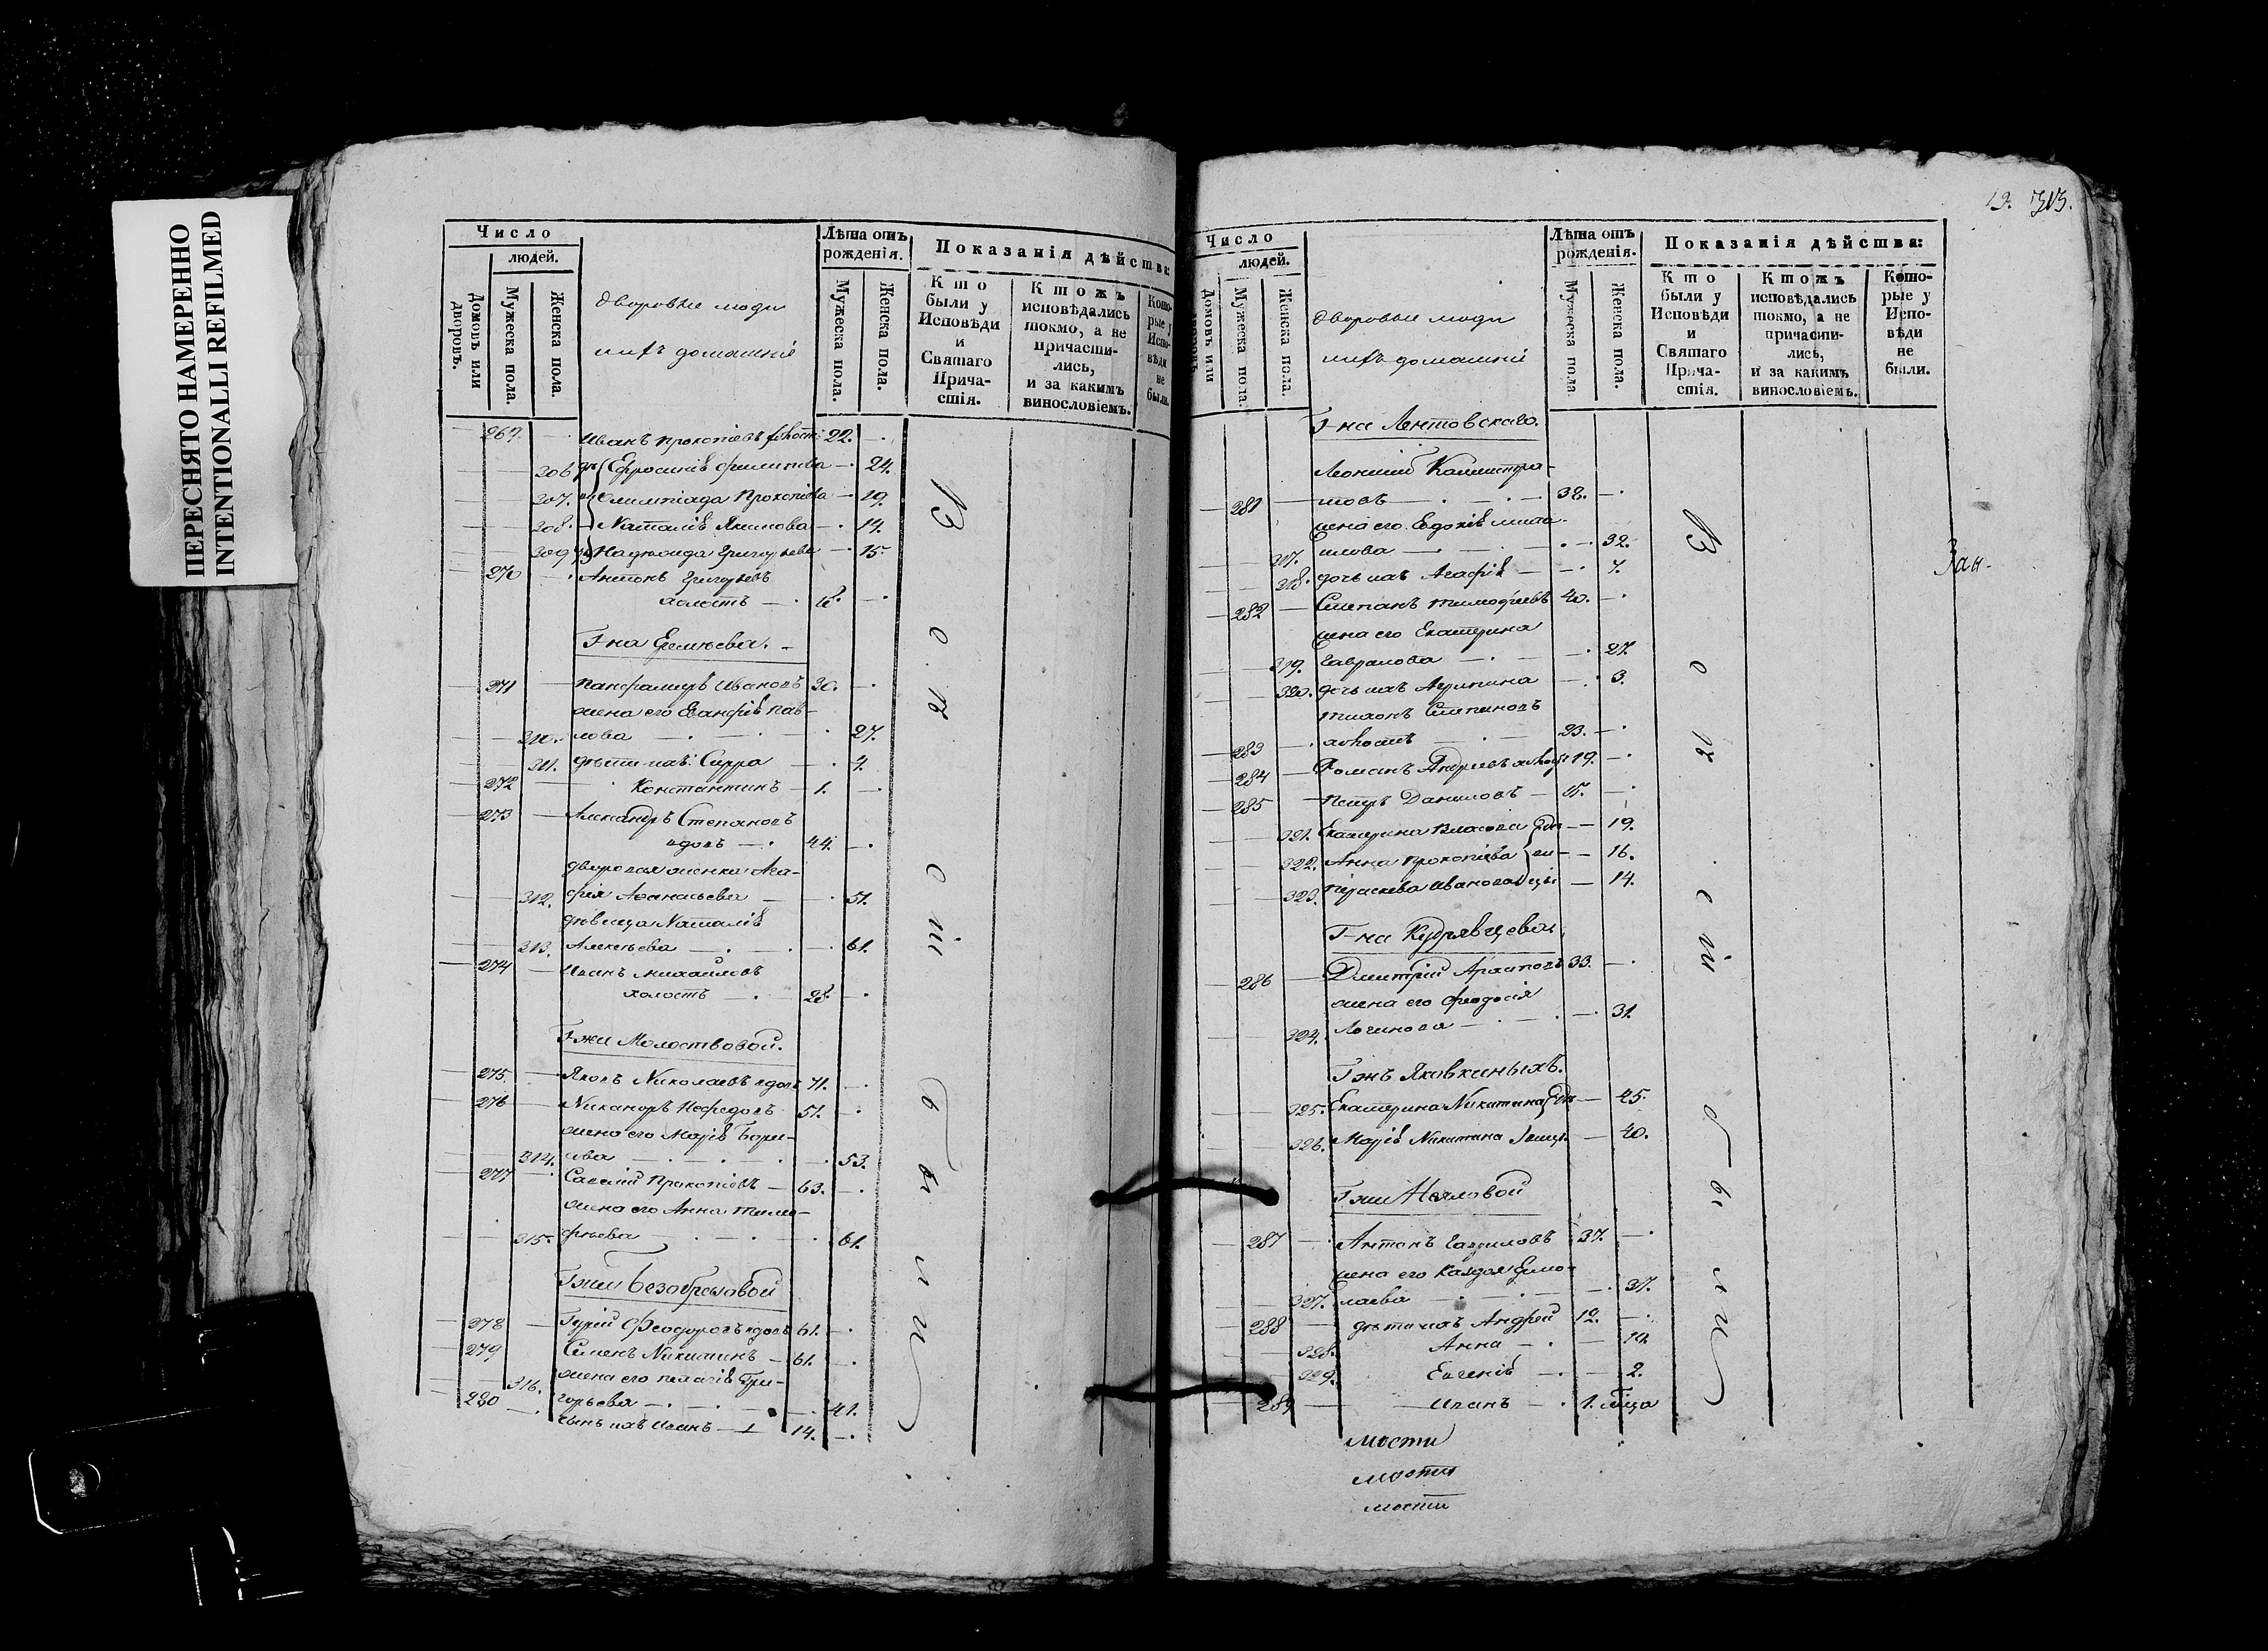 ПЕРЕСНЯТО НАМЕРЕННО
INTENTIONALLI REFILMED
Число
людей.
Домовъ или дворовъ.
Мужеска пола.
Женска пола.
Дворовые люди
ихъ домашніе
Лѣта отъ рожденія.
Мужеска пола.
Женска пола.
Показанія дѣйства:
Кто были у Исповѣди и Святаго Причастія.
Ктожъ исповѣдались токмо, а не причастились, и за какимъ винословіемъ.
Которые у Исповѣди не были.
269. Иванъ Прокопіевъ холостъ 22.
306 Ефросинія Филипова 24.
307. Олимпіада Прокопіева 19.
308. Наталія Якимова 14.
309 Григорьева 15.
270 Антонъ Григорьевъ
холостъ 18.
Г-на
271 Иванов 30.
жена его Пав-
310. лова 27.
311. дѣти ихъ: Сарра 4.
272 Константинъ 1.
273 Александръ Степановъ
вдовъ 44.
дворовая женка Ага-
312. фія Афанасьева 51.
дѣвица Наталія
313. Алексѣева 61.
274 Иванъ Михайловъ
холостъ 28.
Г-жи Молоствовой.
275. Яковъ Николаевъ вдовъ 71.
276 Никаноръ Нефедовъ 51.
жена его Марія Бори-
314. сова 53.
277 Савелій Прокопіевъ 63.
жена его Анна Тимо-
315. фѣева 61.
Г-жи Безобразовой
278 Гурій Феодоровъ вдовъ 61.
279 Семенъ Никитинъ 61.
316. жена его Пелагія Гри-
горьева 41.
280 сынъ ихъ Иванъ 14.
В о въ с ті б ы л и
13. 313.
Число
людей.
Домовъ или дворовъ
Мужеска пола.
Женска пола.
Дворовые люди
ихъ домашніе
Лѣта отъ рожденія.
Мужеска пола
Женска пола.
Показанія дѣйства:
Кто были у Исповѣди и Святаго Причастія.
Ктожъ исповѣдались токмо, а не причастились, и за какимъ винословіемъ.
Которые у Исповѣди не были.
Г-на Лентовскаго.
Леонтій Калистра-
281 товъ 38.
жена его Евдокія
317. 32.
318. дочь ихъ Агафія 7.
282 Степанъ Тимофеевъ 40.
жена его Екатерина
319. Гаврилова 27.
320. дочь ихъ Агрипина 3.
Тихонъ Степановъ
283 холостъ 23.
284 Романъ Андреевъ холостъ 19.
285 Петръ Даниловъ 15.
321. Екатерина Власова 19.
322. Анна Прокопіева 16.
323. Параскева Иванова 14.
Г-на Кудрявцева.
286 Дмитрій Архиповъ 33.
жена его Феодосія
324. Логинова 31.
Г-нъ Яковкиныхъ.
325. Екатерина Никитина 45.
326. Марія Никитина 40.
Г-жи
287 Антонъ Гавриловъ 37.
жена его Ермо-
327. лаева 37.
288 дѣти ихъ Андрей 12.
328. Анна 10.
329. Евгенія 2.
289 Иванъ 1.
мости
мости
мости